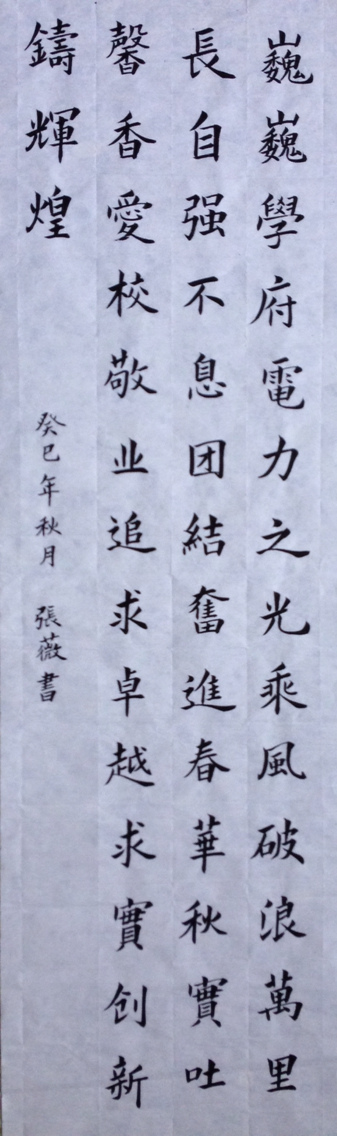 巍巍學府電力之光乘風破浪萬里
長自强不息团結奮進春華秋實吐
馨香愛校敬业追求卓越求實创新
鑄輝煌
癸巳年秋月 張薇書